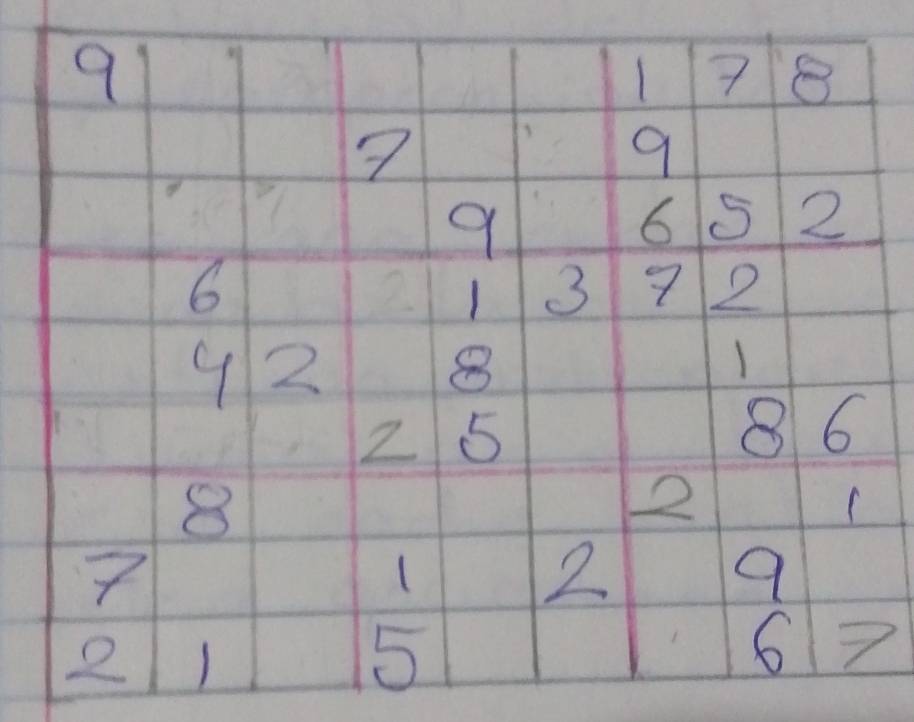 9 1 7 8
7 9
9 6 5 2
6 1 3 7 2
4 2 8 1
2 5 8 6
8 2 1
7 1 2 9
2 1 5 6 7